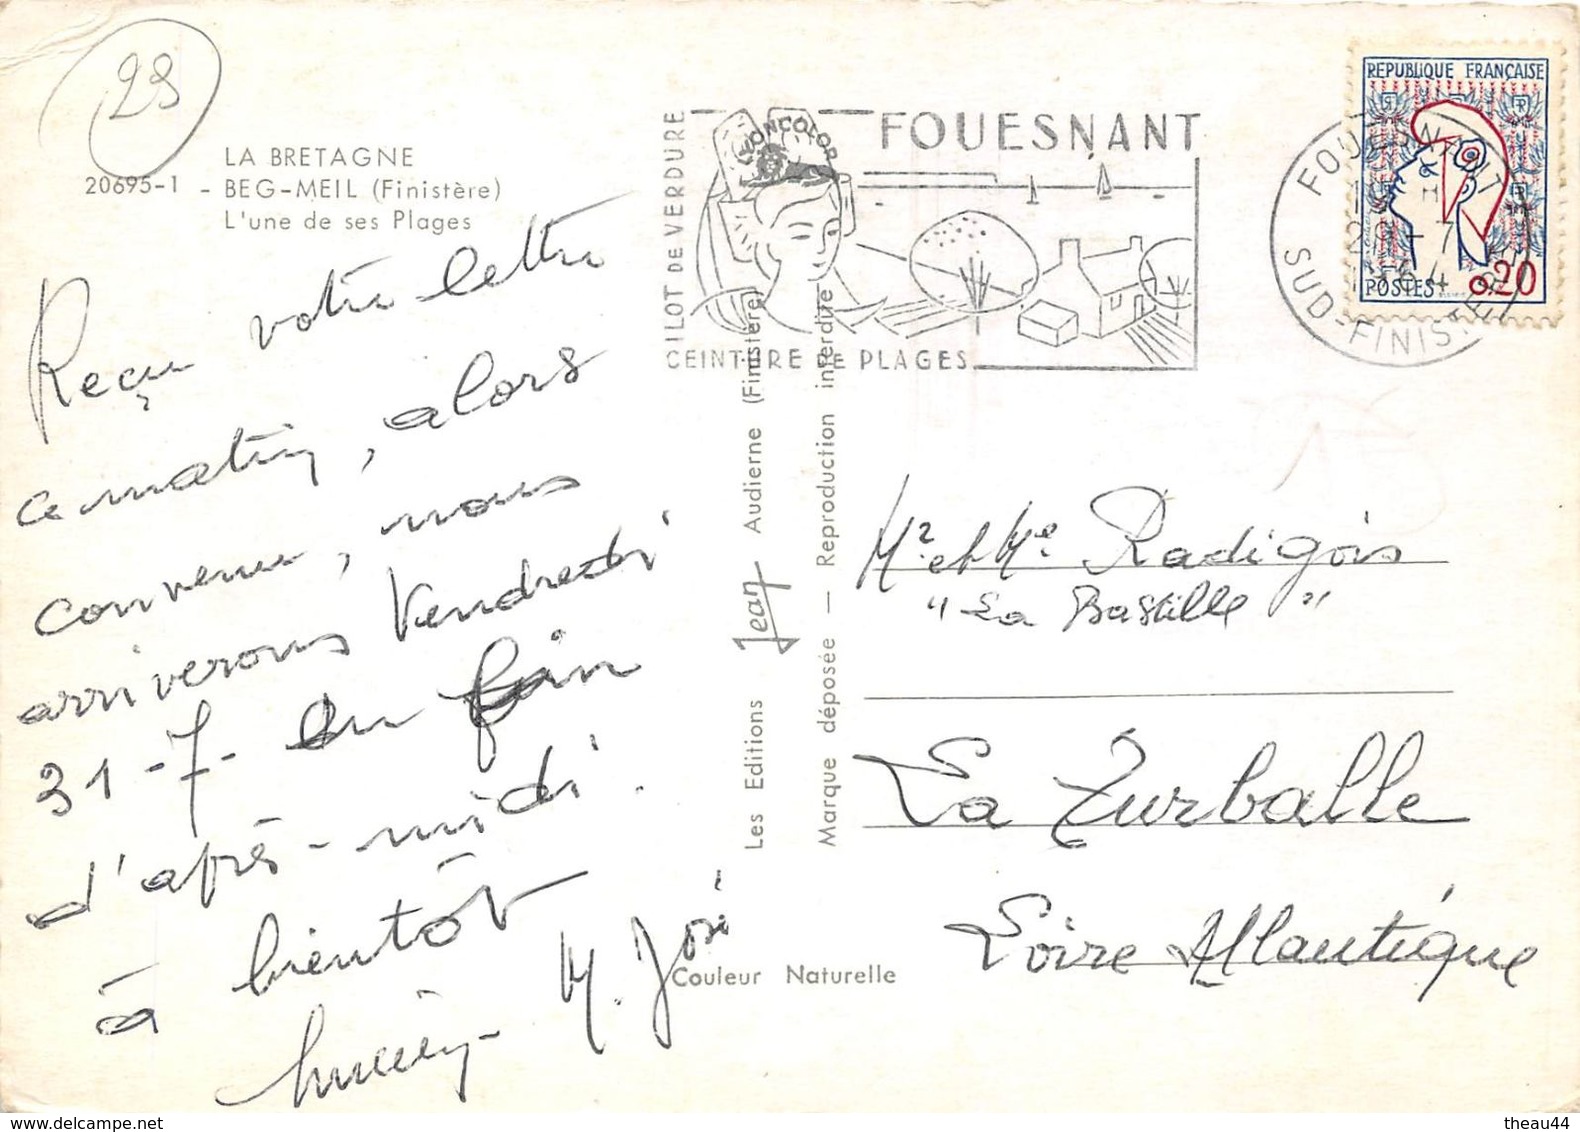 29
LA BRETAGNE
20695-1 - BEG-MEIL (Finistère)
L'une de ses Plages
Reçu votre lettre
ce matin, alors
convenu, nous
arriverons Vendredi
31-7- en fin
d'après-midi.
à bientôt
M. José
ILOT DE VERDURE
LYONCOLOR
FOUESNANT
CEINTURE DE PLAGES
FOUESNANT
SUD-FINISTERE
REPUBLIQUE FRANÇAISE
POSTES 0,20
Les Editions Jean Audierne (Finistère)
Marque déposée — Reproduction interdite
Mr et Me Radigois
"La Bastille"
La Turballe
Loire Atlantique
Couleur Naturelle
theau44